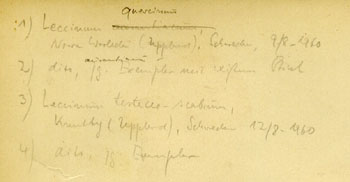 quercinum
1) Leccinum aurantiacum,
Nova Worholm (Uppland), Schweden, 9/8-1960
aurantiacum
2) dito, jg. Exemplar mit weißem Stiel
3) Leccinum testaceo-scabrum,
Krusenby (Uppland), Schweden 12/8-1960
4) dito, jg. Exemplar